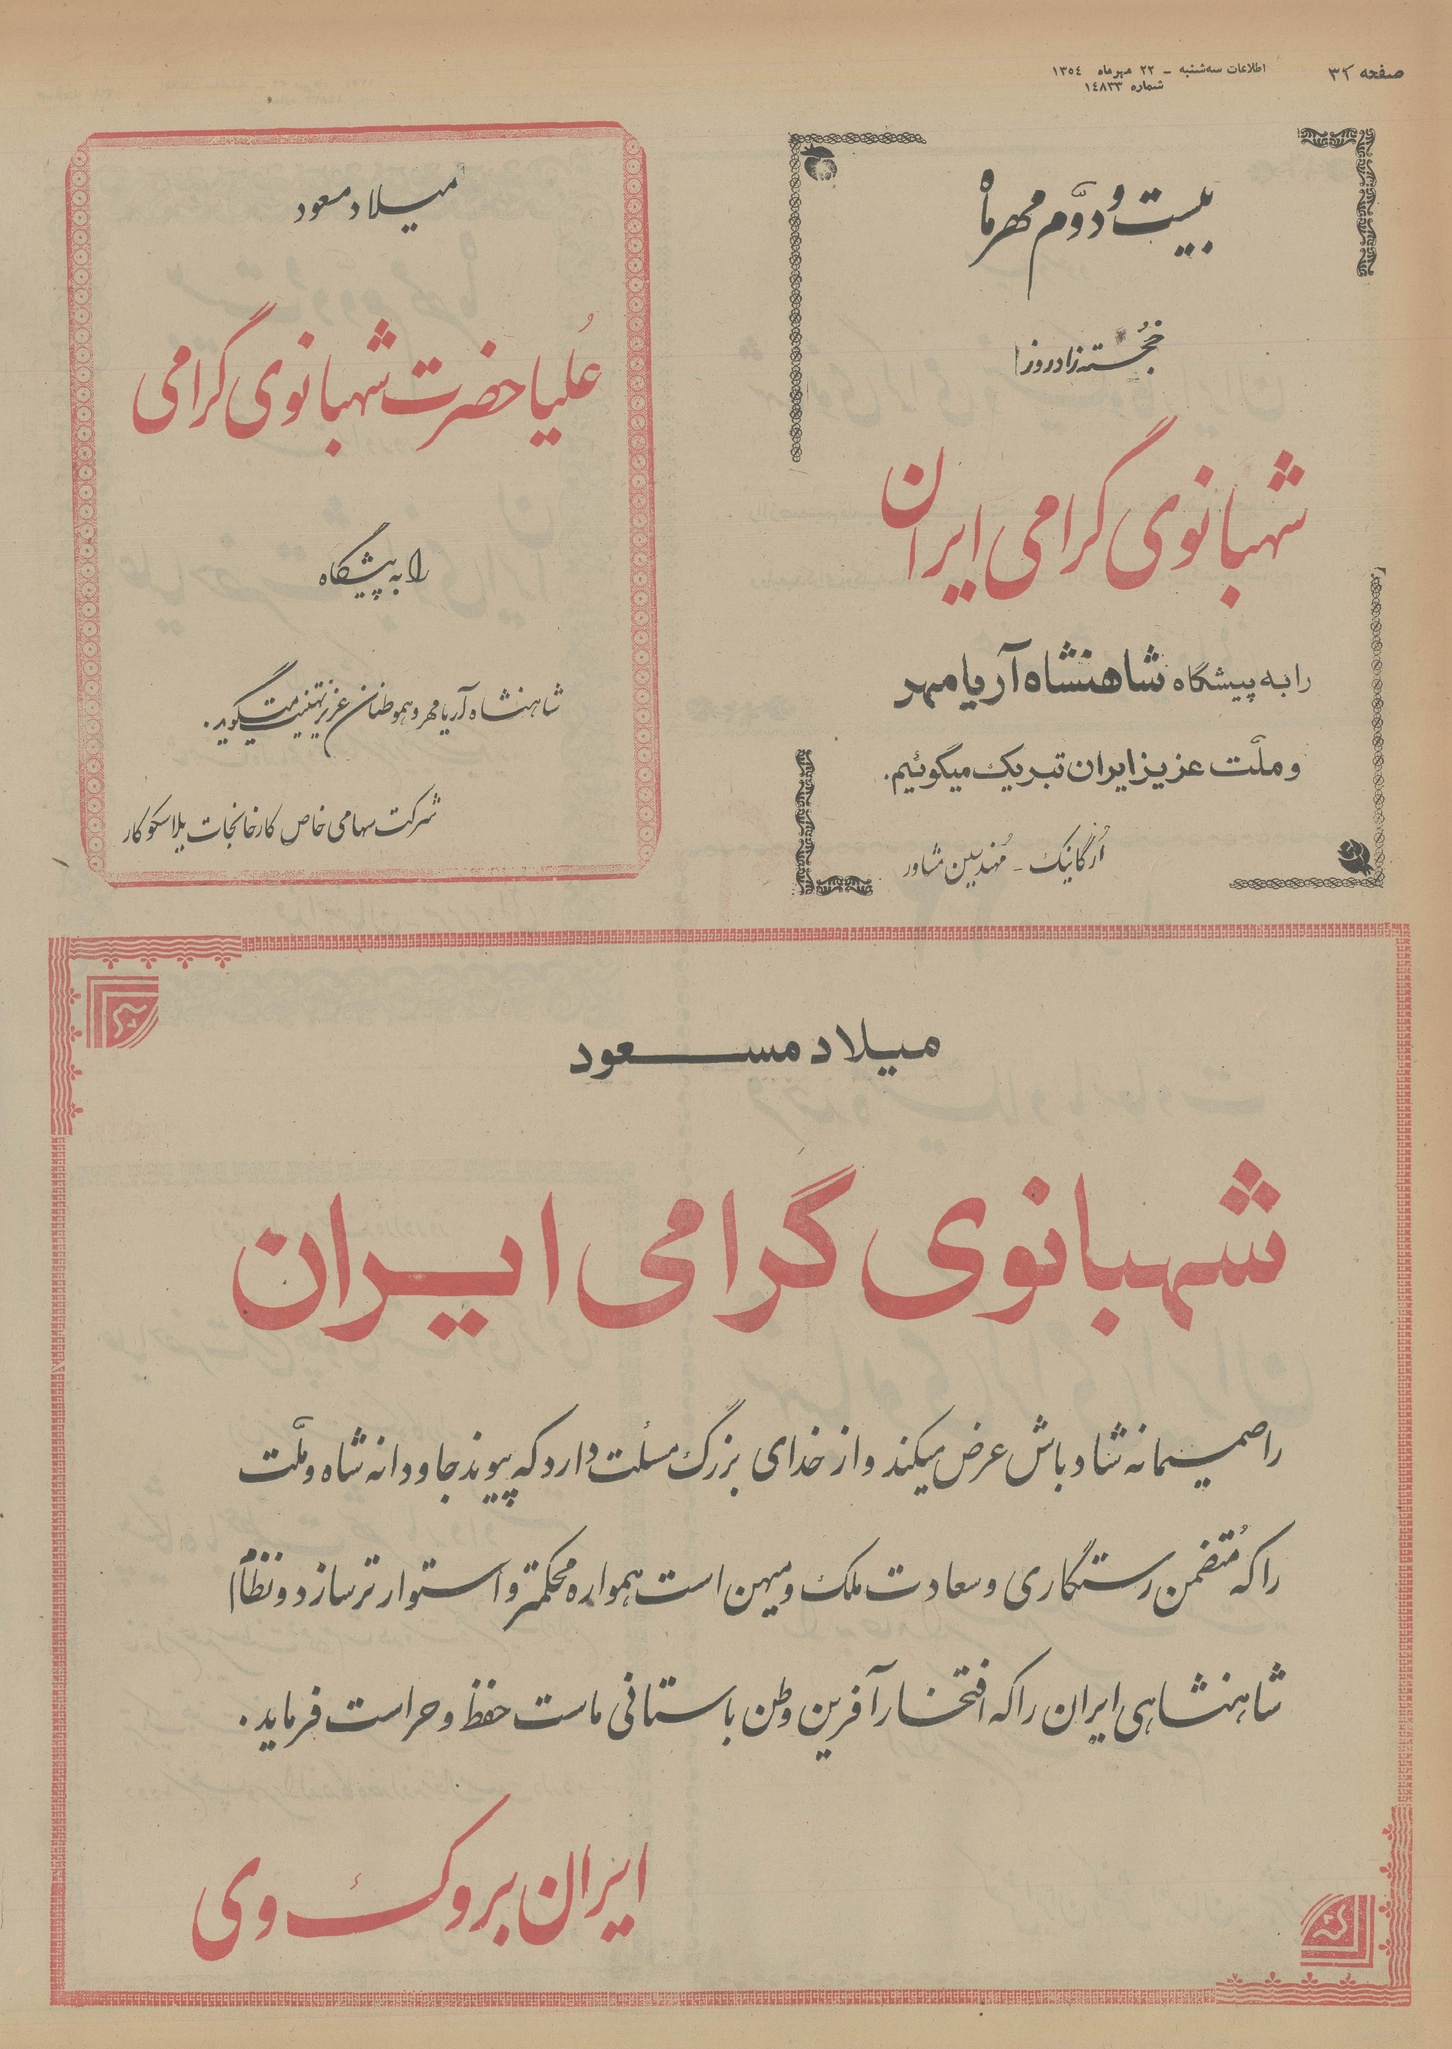 صفحه ۳۲
اطلاعات سه‌شنبه – ۲۲ مهرماه ۱۳۵٤
شماره ۱٤۸۳۳
بیست و دوّم مهر ماه
خُجسته زادروز
شهبانوی گرامی ایران
را به پیشگاه شاهنشاه آریامهر
و ملّت عزیز ایران تبریک میگوئیم.
اُرگانیک – مُهندسین مشاور
میلاد مسعود
عُلیاحضرت شهبانوی گرامی
را به پیشگاه
شاهنشاه آریامهر و هموطنان عزیز تهنیت میگوید.
شرکت سهامی خاص کارخانجات پلاسکوکار
میلاد مسعود
شهبانوی گرامی ایران
را صمیمانه شادباش عرض میکند و از خدای بزرگ مسئلت دارد که پیوند جاودانه شاه و ملّت
را که مُتضمن رستگاری و سعادت ملک و میهن است همواره محکمتر و استوارتر سازد و نظام
شاهنشاهی ایران را که افتخارآفرین وطن باستانی ماست حفظ و حراست فرماید.
ایران بروک وی